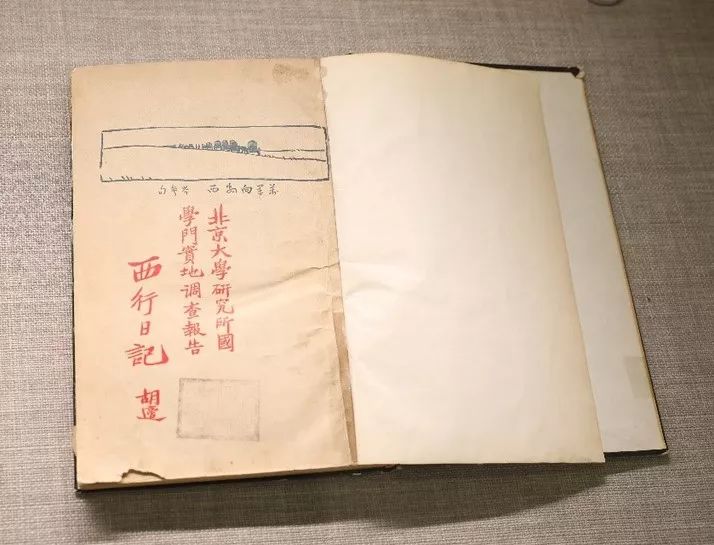 北京大學研究所國
學門實地调查報告
西行日記
胡適